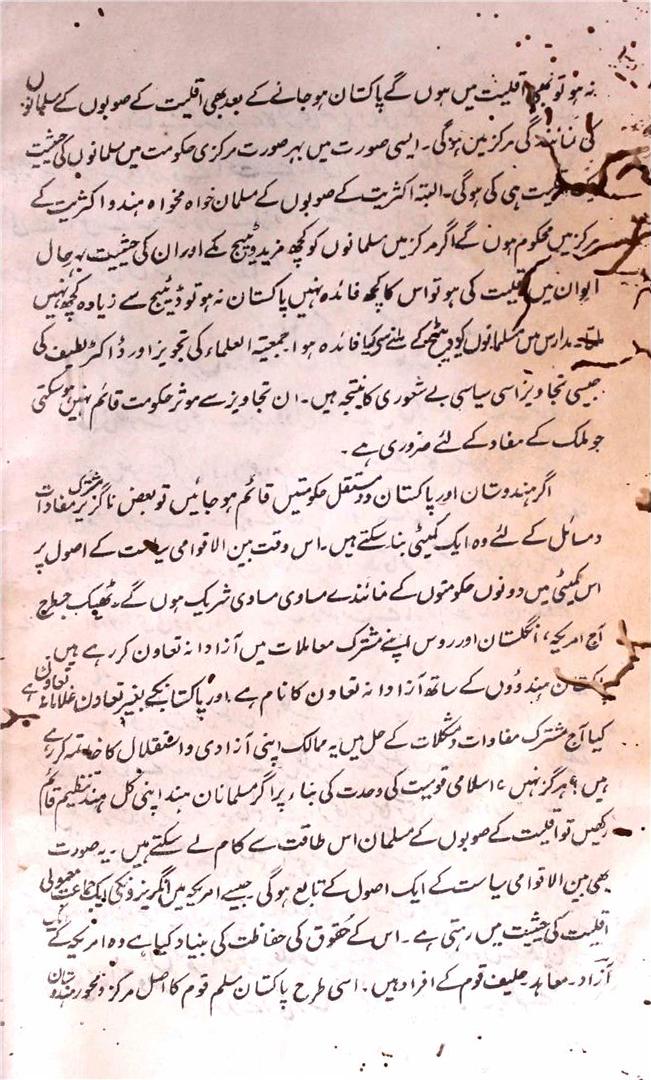 نہ ہو تو بھی اقلیت میں ہوں گے پاکستان ہو جانے کے بعد بھی اقلیت کے صوبوں کے مسلمانوں
کی نمائندگی مرکز میں ہوگی۔ ایسی صورت میں بہر صورت مرکزی حکومت میں مسلمانوں کی حیثیت
اقلیت ہی کی ہوگی۔ البتہ اکثریت کے صوبوں کے مسلمان خواہ مخواہ ہندو اکثریت کے
مرکز میں محکوم ہوں گے اگر مرکز میں مسلمانوں کو کچھ مزید ویٹیج ملے اور ان کی حیثیت بہرحال
ایوان میں اقلیت کی ہو تو اس کا کچھ فائدہ نہیں پاکستان نہ ہو تو ویٹیج سے زیادہ کچھ نہیں
ملتا۔ مدارس میں مسلمانوں کو ویٹیج کے ملنے سے کیا فائدہ ہوا۔ جمعیۃ العلماء کی تجویز اور ڈاکٹر لطیف کی
جیسی تجاویز اسی سیاسی بے شعوری کا نتیجہ ہیں۔ ان تجاویز سے موثر حکومت قائم نہیں ہو سکتی
جو ملک کے مفاد کے لئے ضروری ہے۔
اگر ہندوستان اور پاکستان دو مستقل حکومتیں قائم ہو جائیں تو بعض ناگزیر مشترک مفادات
و مسائل کے لئے وہ ایک کمیٹی بنا سکتے ہیں۔ اس وقت بین الاقوامی سیاست کے اصول پر
اس کمیٹی میں دونوں حکومتوں کے نمائندے مساوی مساوی شریک ہوں گے۔ ٹھیک جس طرح
آج امریکہ، انگلستان اور روس اپنے مشترک معاملات میں آزادانہ تعاون کر رہے ہیں۔
پاکستان ہندوؤں کے ساتھ آزادانہ تعاون کا نام ہے۔ اور پاکستان کے بغیر تعاون غلامانہ تعاون ہے
کیا آج مشترک مفادات و مشکلات کے حل میں یہ ممالک اپنی آزادی و استقلال کا خاتمہ کر رہے
ہیں؟ ہرگز نہیں، اسلامی قومیت کی وحدت کی بناء پر اگر مسلمانان ہند اپنی کل ہند تنظیم قائم
رکھیں تو اقلیت کے صوبوں کے مسلمان اس طاقت سے کام لے سکتے ہیں۔ یہ صورت
بھی بین الاقوامی سیاست کے ایک اصول کے تابع ہوگی جیسے امریکہ میں انگریزوں کی ایک جماعت معمولی
اقلیت کی حیثیت میں رہتی ہے۔ اس کے حقوق کی حفاظت کی بنیاد کیا ہے وہ امریکہ کے
آزاد۔ معاہد۔ حلیف قوم کے افراد ہیں۔ اسی طرح پاکستان مسلم قوم کا اصل مرکز و محور ہندوستان